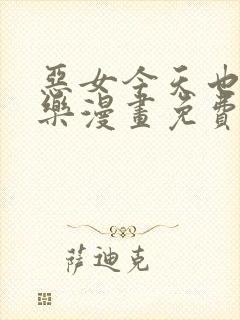 惡女今天也
樂漫畫免費
萨迪克